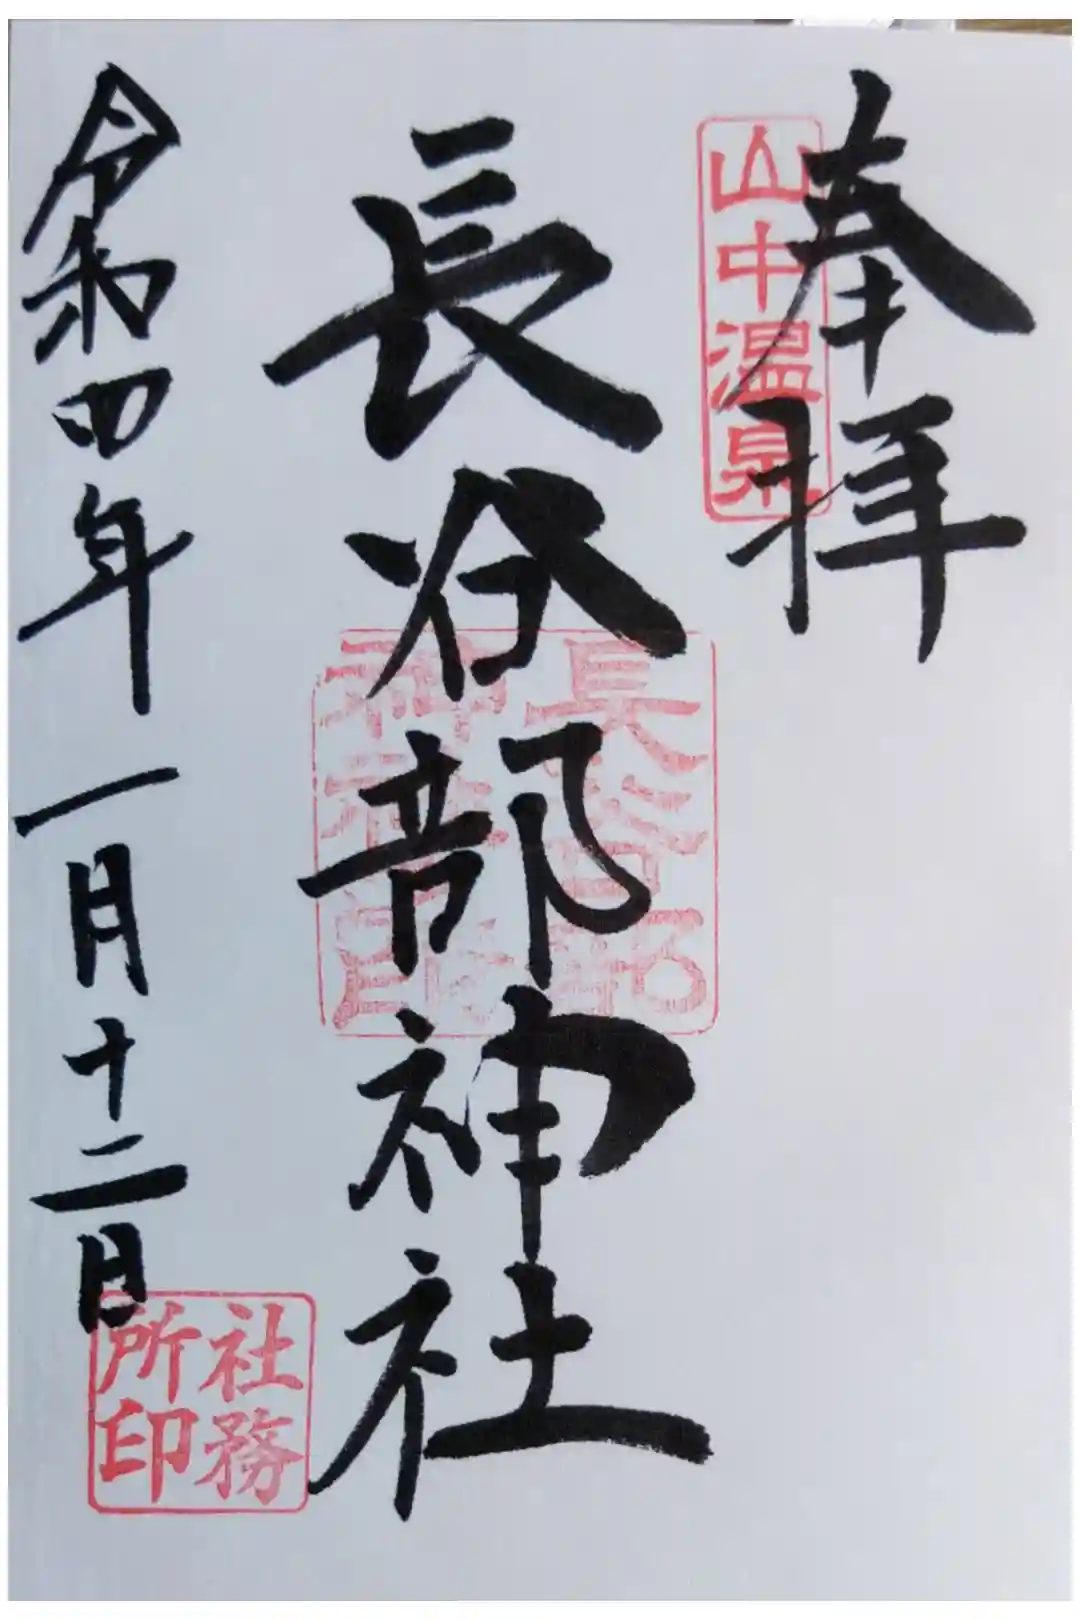 奉拝
山中温泉
長谷部神社
長谷部
神社
令和四年一月十二日
社務
所印